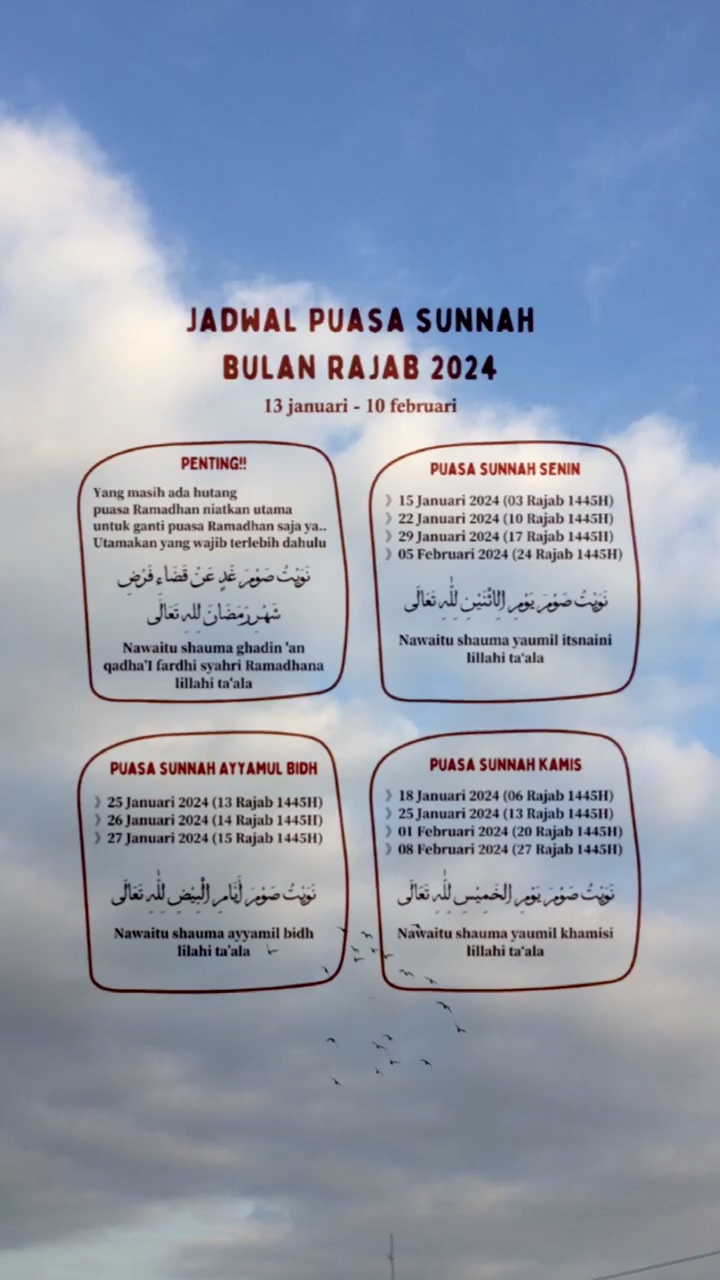 JADWAL PUASA SUNNAH
BULAN RAJAB 2024
13 januari - 10 februari
PENTING!!
Yang masih ada hutang
puasa Ramadhan niatkan utama
untuk ganti puasa Ramadhan saja ya..
Utamakan yang wajib terlebih dahulu
نَوَيْتُ صَوْمَ غَدٍ عَنْ قَضَاءِ فَرْضِ
شَهْرِ رَمَضَانَ لِلهِ تَعَالَى
Nawaitu shauma ghadin 'an
qadha'I fardhi syahri Ramadhana
lillahi ta'ala
PUASA SUNNAH SENIN
》15 Januari 2024 (03 Rajab 1445H)
》22 Januari 2024 (10 Rajab 1445H)
》29 Januari 2024 (17 Rajab 1445H)
》05 Februari 2024 (24 Rajab 1445H)
نَوَيْتُ صَوْمَ يَوْمِ الِاثْنَيْنِ لِلّٰهِ تَعَالَى
Nawaitu shauma yaumil itsnaini
lillahi ta'ala
PUASA SUNNAH AYYAMUL BIDH
》25 Januari 2024 (13 Rajab 1445H)
》26 Januari 2024 (14 Rajab 1445H)
》27 Januari 2024 (15 Rajab 1445H)
نَوَيْتُ صَوْمَ أَيَّامِ الْبِيْضِ لِلّٰهِ تَعَالَى
Nawaitu shauma ayyamil bidh
lilahi ta'ala
PUASA SUNNAH KAMIS
》18 Januari 2024 (06 Rajab 1445H)
》25 Januari 2024 (13 Rajab 1445H)
》01 Februari 2024 (20 Rajab 1445H)
》08 Februari 2024 (27 Rajab 1445H)
نَوَيْتُ صَوْمَ يَوْمِ الْخَمِيْسِ لِلّٰهِ تَعَالَى
Nawaitu shauma yaumil khamisi
lillahi ta'ala